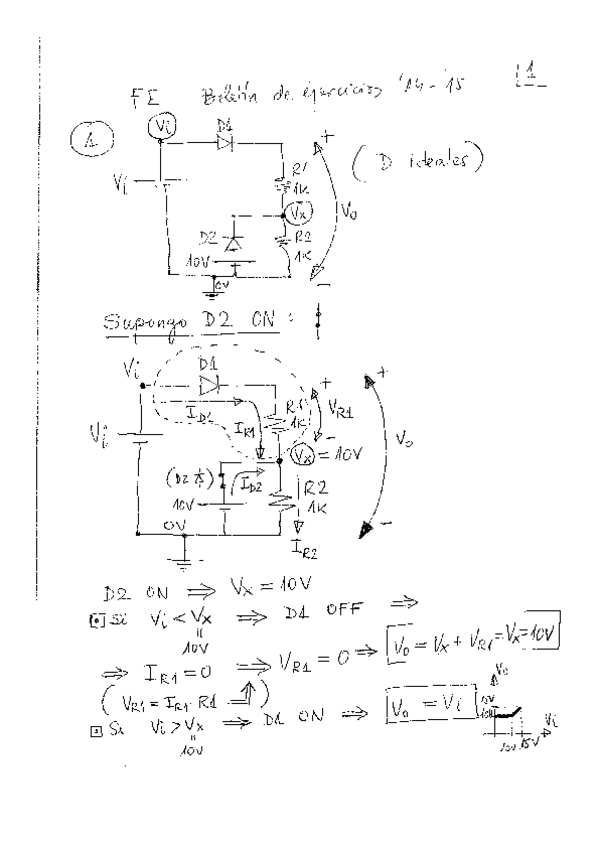 FE Boletín de ejercicios '14-'15
1
1
Vi
D1
(D ideales)
Vi
R1
1K
Vx
V0
D2
R2
1K
10V
0V
+
-
Supongo D2 ON :
Vi
D1
ID1
IR1
R1
1K
+
VR1
-
Vi
Vx = 10V
V0
+
-
(D2)
ID2
10V
R2
1K
0V
IR2
D2 ON ⇒ Vx = 10V
Si Vi < Vx ⇒ D1 OFF ⇒
10V
⇒ IR1 = 0 ⇒ VR1 = 0 ⇒ V0 = Vx + VR1 = Vx = 10V
(VR1 = IR1 · R1 ⇒)
Si Vi > Vx ⇒ D1 ON ⇒ V0 = Vi
10V
V0
15V
10V
Vi
10V 15V